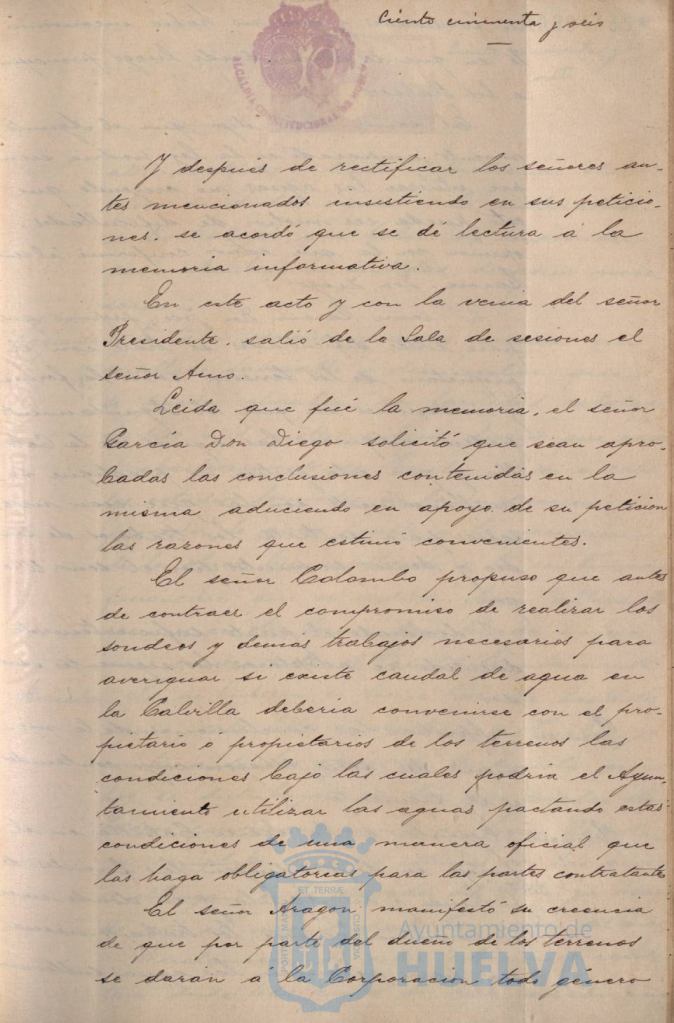 Ciento cincuenta y seis
ALCALDIA CONSTITUCIONAL DE HUELVA
Y después de rectificar los señores an-
tes mencionados insistiendo en sus peticio-
nes, se acordó que se dé lectura á la
memoria informativa.
En este acto y con la venia del señor
Presidente, salió de la Sala de sesiones el
señor Amo.
Leida que fué la memoria, el señor
García Don Diego solicitó que sean apro-
badas las conclusiones contenidas en la
misma aduciendo en apoyo de su petición
las razones que estimó convenientes.
El señor Colombo propuso que antes
de contraer el compromiso de realizar los
sondeos y demás trabajos necesarios para
averiguar si existe caudal de agua en
la Calvilla deberia convenirse con el pro-
pietario ó propietarios de los terrenos las
condiciones bajo las cuales podria el Ayun-
tamiento utilizar las aguas pactando estas
condiciones de una manera oficial que
las haga obligatorias para las partes contratantes
El señor Aragon manifestó su creencia
de que por parte del dueño de los terrenos
se darán á la Corporación todo género
Ayuntamiento de
HUELVA